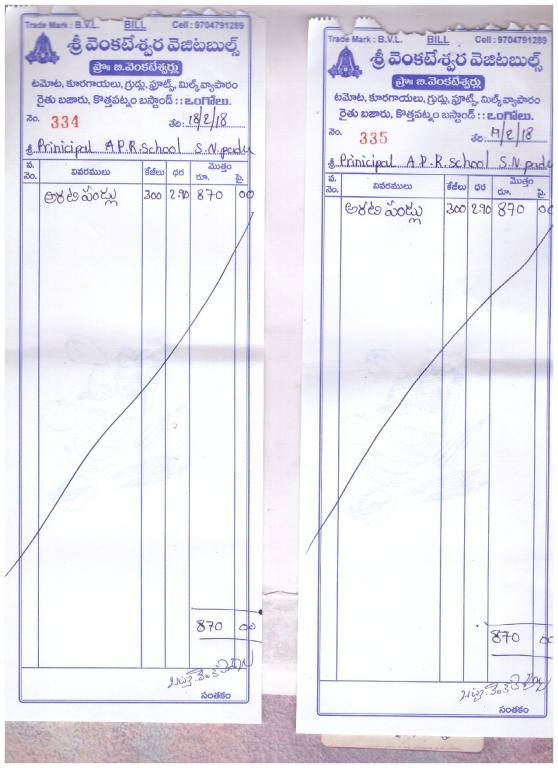 Trade Mark : B.V.L. BILL Cell : 9704791289
శ్రీ వెంకటేశ్వర వెజిటబుల్స్
ప్రొః బి.వెంకటేశ్వర్లు
టమోట, కూరగాయలు, గ్రుడ్లు, ఫ్రూట్స్, మిల్క్ వ్యాపారం
రైతు బజారు, కొత్తపట్నం బస్టాండ్ :: ఒంగోలు.
నెం. 334 తేది: 18/2/18
శ్రీ Prinicipal A.P.R.School S.N.padu
వ. నెం. వివరములు కేజీలు ధర మొత్తం రూ. పై.
అరటి పండ్లు 300 2.90 870 00
870 00
సంతకం
Trade Mark : B.V.L. BILL Cell : 9704791289
శ్రీ వెంకటేశ్వర వెజిటబుల్స్
ప్రొః బి.వెంకటేశ్వర్లు
టమోట, కూరగాయలు, గ్రుడ్లు, ఫ్రూట్స్, మిల్క్ వ్యాపారం
రైతు బజారు, కొత్తపట్నం బస్టాండ్ :: ఒంగోలు.
నెం. 335 తేది:
శ్రీ Prinicipal A.P.R.school S.N.padu
వ. నెం. వివరములు కేజీలు ధర మొత్తం రూ. పై.
అరటి పండ్లు 300 2.90 870 00
870 00
సంతకం